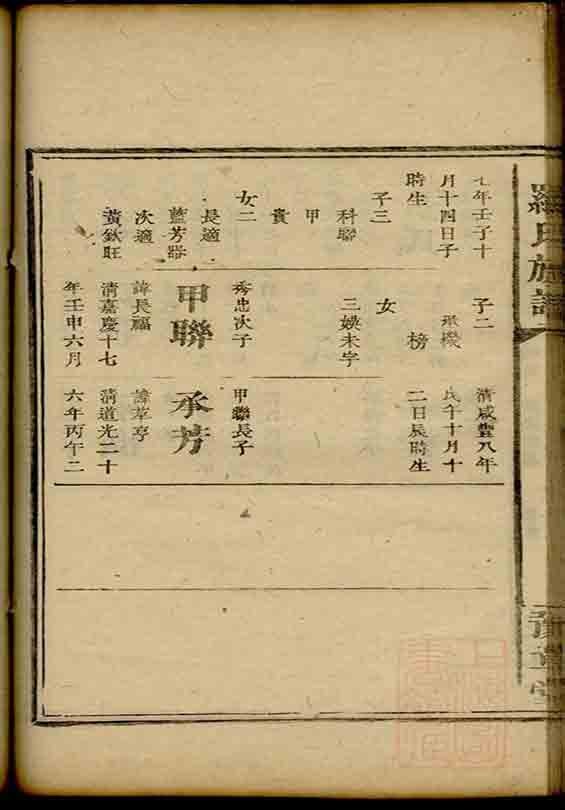 羅氏族譜
七年壬子十
月十四日子
時生
子三
科聯
甲
貴
女二
長適
藍芳蹊
次適
黃欽旺
子二
承機
榜
女
三娛未字
秀忠次子
甲聯
諱長福
清嘉慶十七
年壬申六月
清咸豐八年
戊午十月十
二日辰時生
甲聯長子
承芳
諱萃亭
清道光二十
六年丙午二